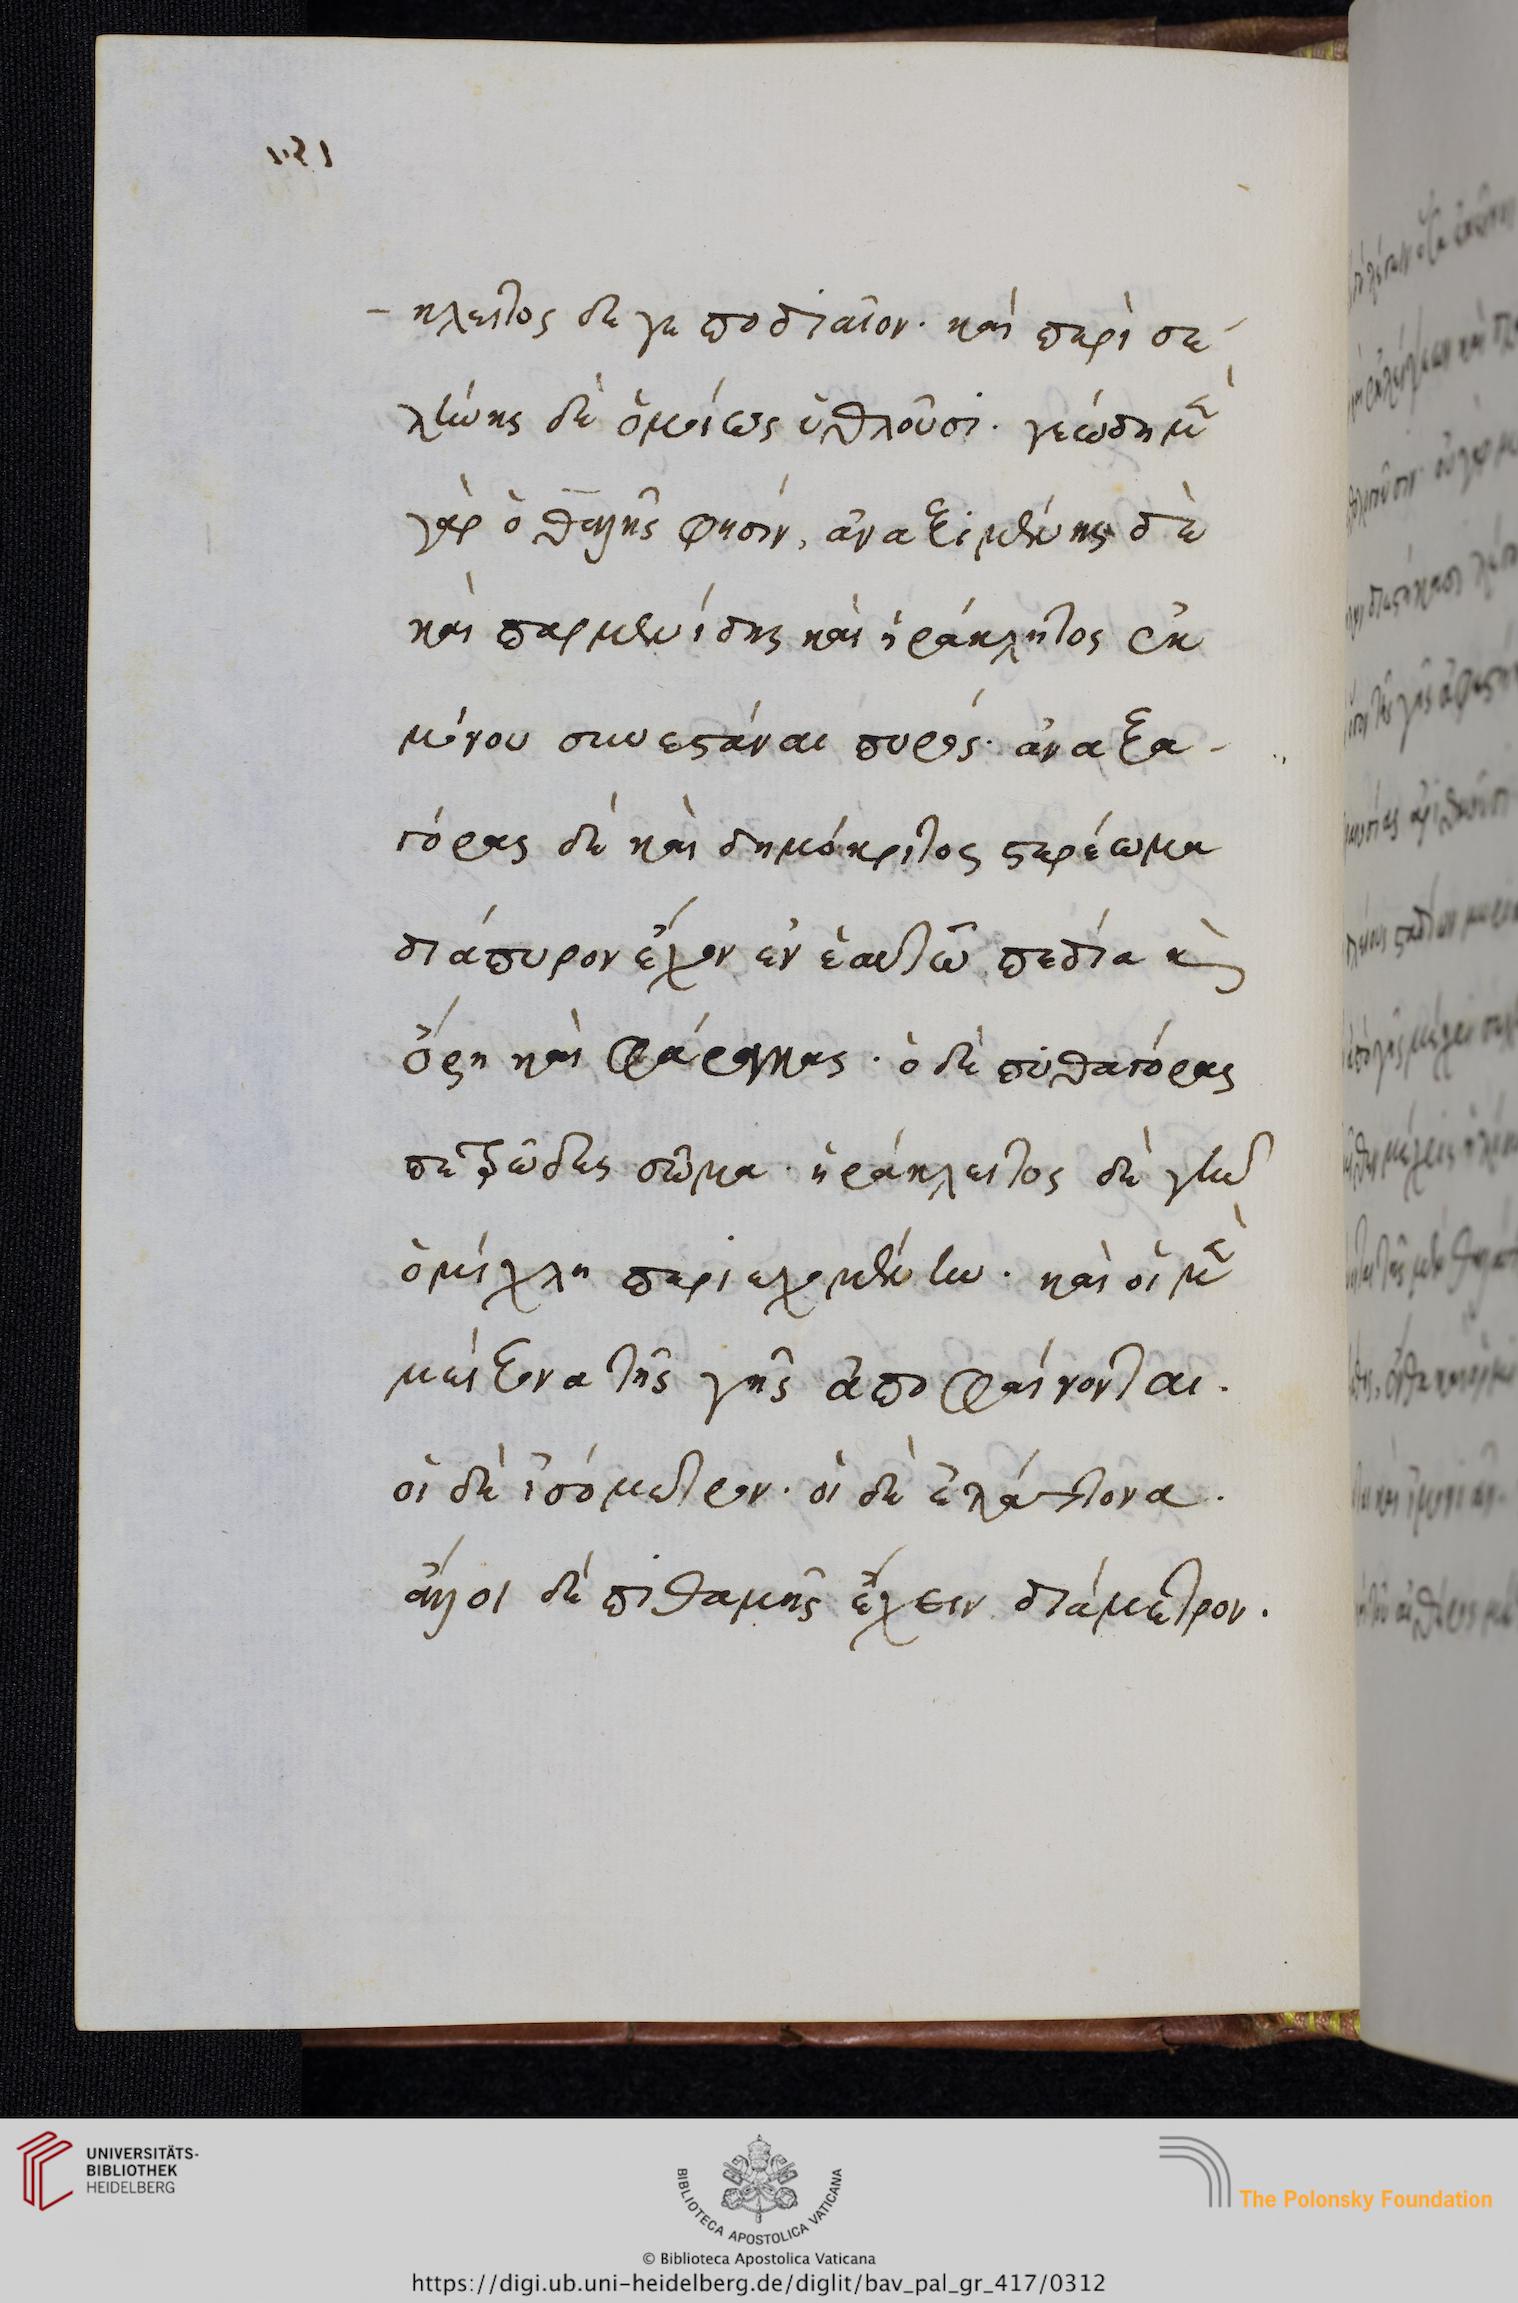 κλειτος δέ γε ποδιαῖον· καὶ περὶ σε-
λήνης δὲ ὁμοίως ὑθλοῦσι. γεώδη μὲν
γὰρ ὁ θαλῆς φησίν, ἀναξιμένης δὲ
καὶ παρμενίδης καὶ ἡράκλητος ἐκ
μόνου συνεστάναι πυρός· ἀναξα-
γόρας δὲ καὶ δημόκριτος στερέωμα
διάπυρον ἔχον ἐν ἑαυτῶ πεδία καὶ
ὄρη καὶ φάραγγας· ὁ δὲ πυθαγόρας
πετρῶδες σῶμα· ἡράκλειτος δὲ γῆν
ὁμίχλη περιεχομένην· καὶ οἱ μὲν
μείζονα τῆς γῆς ἀποφαίνονται.
οἱ δὲ ἰσόμετρον· οἱ δὲ ἐλάττονα.
ἄλλοι δὲ πιθαμῆς ἔχειν διάμετρον.
UNIVERSITÄTS-
BIBLIOTHEK
HEIDELBERG
BIBLIOTECA APOSTOLICA VATICANA
The Polonsky Foundation
© Biblioteca Apostolica Vaticana
https://digi.ub.uni-heidelberg.de/diglit/bav_pal_gr_417/0312